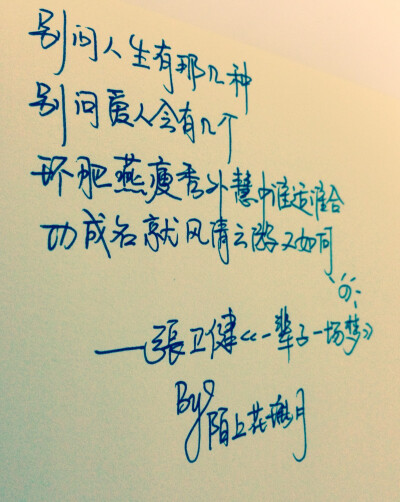 别问人生有那几种
别问爱人会有几个
环肥燕瘦秀外慧中谁适谁合
功成名就风清云淡又如何
——張卫健《一辈子一场梦》
By
陌上花掬月